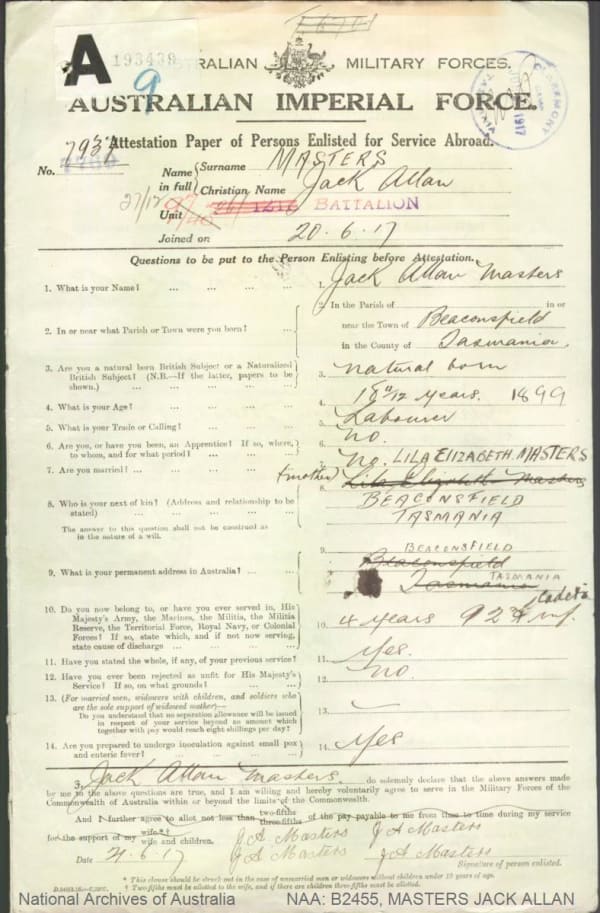 A 193439
AUSTRALIAN MILITARY FORCES.
9
AUSTRALIAN IMPERIAL FORCE.
CLAREMONT
TASMANIA
1917
Attestation Paper of Persons Enlisted for Service Abroad.
No. 7937
Name in full { Surname MASTERS
Christian Name Jack Allan
27/12
Unit 12TH BATTALION
Joined on 20.6.17
Questions to be put to the Person Enlisting before Attestation.
1. What is your Name? ... ... ... ... 1. Jack Allan Masters
2. In or near what Parish or Town were you born? ... ... 2. In the Parish of in or
near the Town of Beaconsfield
in the County of Tasmania
3. Are you a natural born British Subject or a Naturalized
British Subject? (N.B.—If the latter, papers to be
shown.) ... ... ... ... 3. natural born
4. What is your Age? ... ... ... ... 4. 18 /12 years. 1899
5. What is your Trade or Calling? ... ... ... 5. Labourer
6. Are you, or have you been, an Apprentice? If so, where,
to whom, and for what period? ... ... 6. No.
7. Are you married? ... ... ... ... 7. No.
LILA ELIZABETH MASTERS
8. Who is your next of kin? (Address and relationship to be
stated) ... ... ... ... (mother) 8. Lila Elizabeth Masters
BEACONSFIELD
TASMANIA
The answer to this question shall not be construed as
in the nature of a will.
9. What is your permanent address in Australia? ... ... 9. BEACONSFIELD
Beaconsfield
TASMANIA
Tasmania
10. Do you now belong to, or have you ever served in, His
Majesty's Army, the Marines, the Militia, the Militia
Reserve, the Territorial Force, Royal Navy, or Colonial
Forces? If so, state which, and if not now serving,
state cause of discharge ... ... ... 10. 4 years 92nd Inf. Cadets
11. Have you stated the whole, if any, of your previous service? 11. Yes.
12. Have you ever been rejected as unfit for His Majesty's
Service? If so, on what grounds? ... ... 12. no.
13. (For married men, widowers with children, and soldiers who
are the sole support of widowed mother)—
Do you understand that no separation allowance will be issued
in respect of your service beyond an amount which
together with pay would reach eight shillings per day? 13. —
14. Are you prepared to undergo inoculation against small pox
and enteric fever? ... ... ... ... 14. Yes
I, Jack Allan Masters do solemnly declare that the above answers made
by me to the above questions are true, and I am willing and hereby voluntarily agree to serve in the Military Forces of the
Commonwealth of Australia within or beyond the limits of the Commonwealth.
And I further agree to allot not less than two-fifths three-fifths of the pay payable to me from time to time during my service
for the support of my wife*† wife and children.
J A Masters J A Masters
J A Masters J A Masters
Date 21.6.17 Signature of person enlisted.
* This clause should be struck out in the case of unmarried men or widowers without children under 18 years of age.
† Two-fifths must be allotted to the wife, and if there are children three-fifths must be allotted.
National Archives of Australia NAA: B2455, MASTERS JACK ALLAN